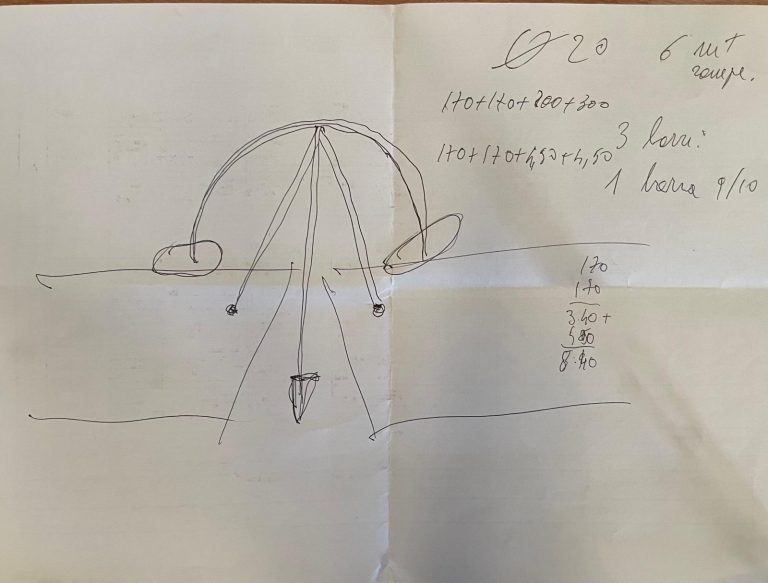 Ø 20 6 mt
170+170+300+300
3 barre:
170+170+4,50+4,50
1 barra 9/10
170
170
3.40+
8.40